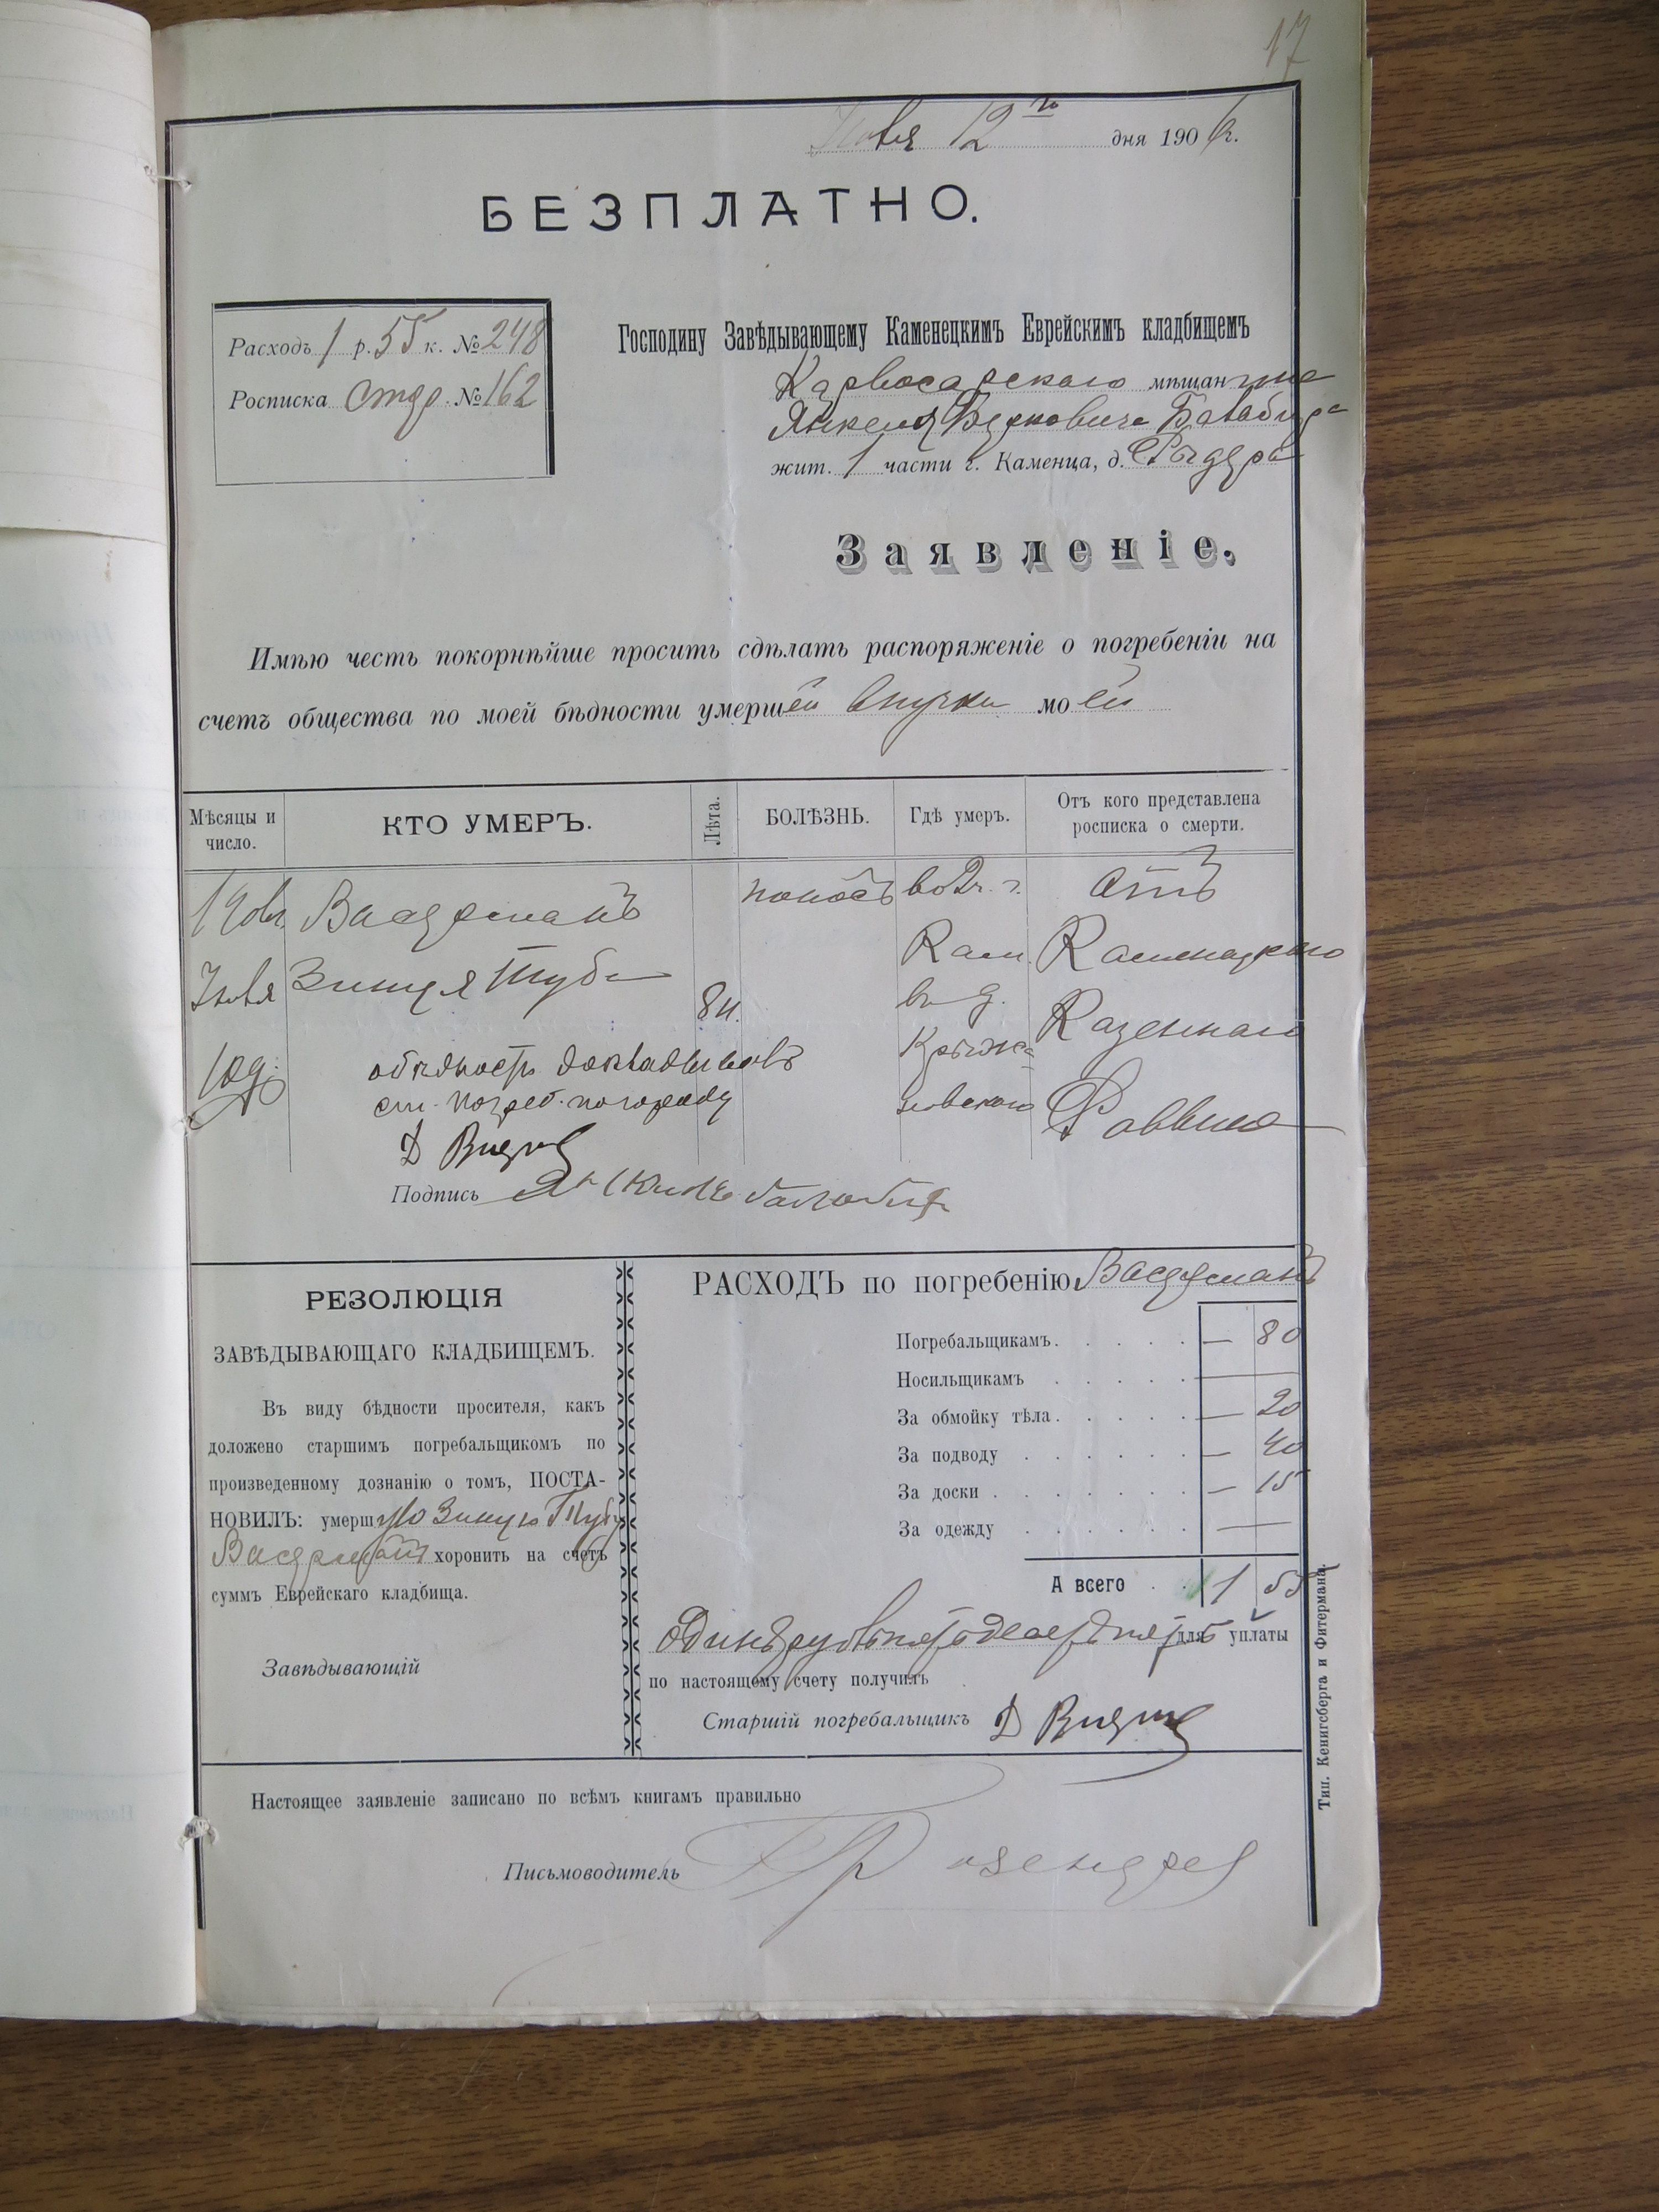 17
12го дня 1906 г.
БЕЗПЛАТНО.
Расходъ 1 р. 55 к. № 248
Росписка стдр. № 162
Господину Завѣдывающему Каменецкимъ Еврейскимъ кладбищемъ
мѣщанина
Янкеля Берковича
жит. 1 части г. Каменца, д.
Заявленіе.
Имѣю честь покорнѣйше просить сдѣлать распоряженіе о погребеніи на
счетъ общества по моей бѣдности умершей внучки моей
Мѣсяцы и число.
КТО УМЕРЪ.
Лѣта.
БОЛѢЗНЬ.
Гдѣ умеръ.
Отъ кого представлена росписка о смерти.
Васерманъ
поносъ
во 2 ч. г.
отъ
Зинуля Туба
Кам.
Каменецкаго
8 м.
въ д.
Казеннаго
Раввина
о бѣдности
Подпись
РЕЗОЛЮЦІЯ
ЗАВѢДЫВАЮЩАГО КЛАДБИЩЕМЪ.
Въ виду бѣдности просителя, какъ
доложено старшимъ погребальщикомъ по
произведенному дознанію о томъ, ПОСТА-
НОВИЛЪ: умершую Тубу
Васерманъ хоронить на счетъ
суммъ Еврейскаго кладбища.
Завѣдывающій
РАСХОДЪ по погребенію Васерманъ
Погребальщикамъ. — 80
Носильщикамъ —
За обмойку тѣла. — 20
За подводу — 40
За доски — 15
За одежду —
А всего 1 55
одинъ рубль пятьдесятъ пять для уплаты
по настоящему счету получилъ
Старшій погребальщикъ
Настоящее заявленіе записано по всѣмъ книгамъ правильно
Письмоводитель
Тип. Кенигсберга и Фитермана.